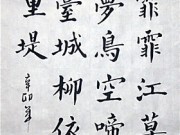 霏霏江草
夢鳥空啼
臺城柳依
里堤
辛卯年